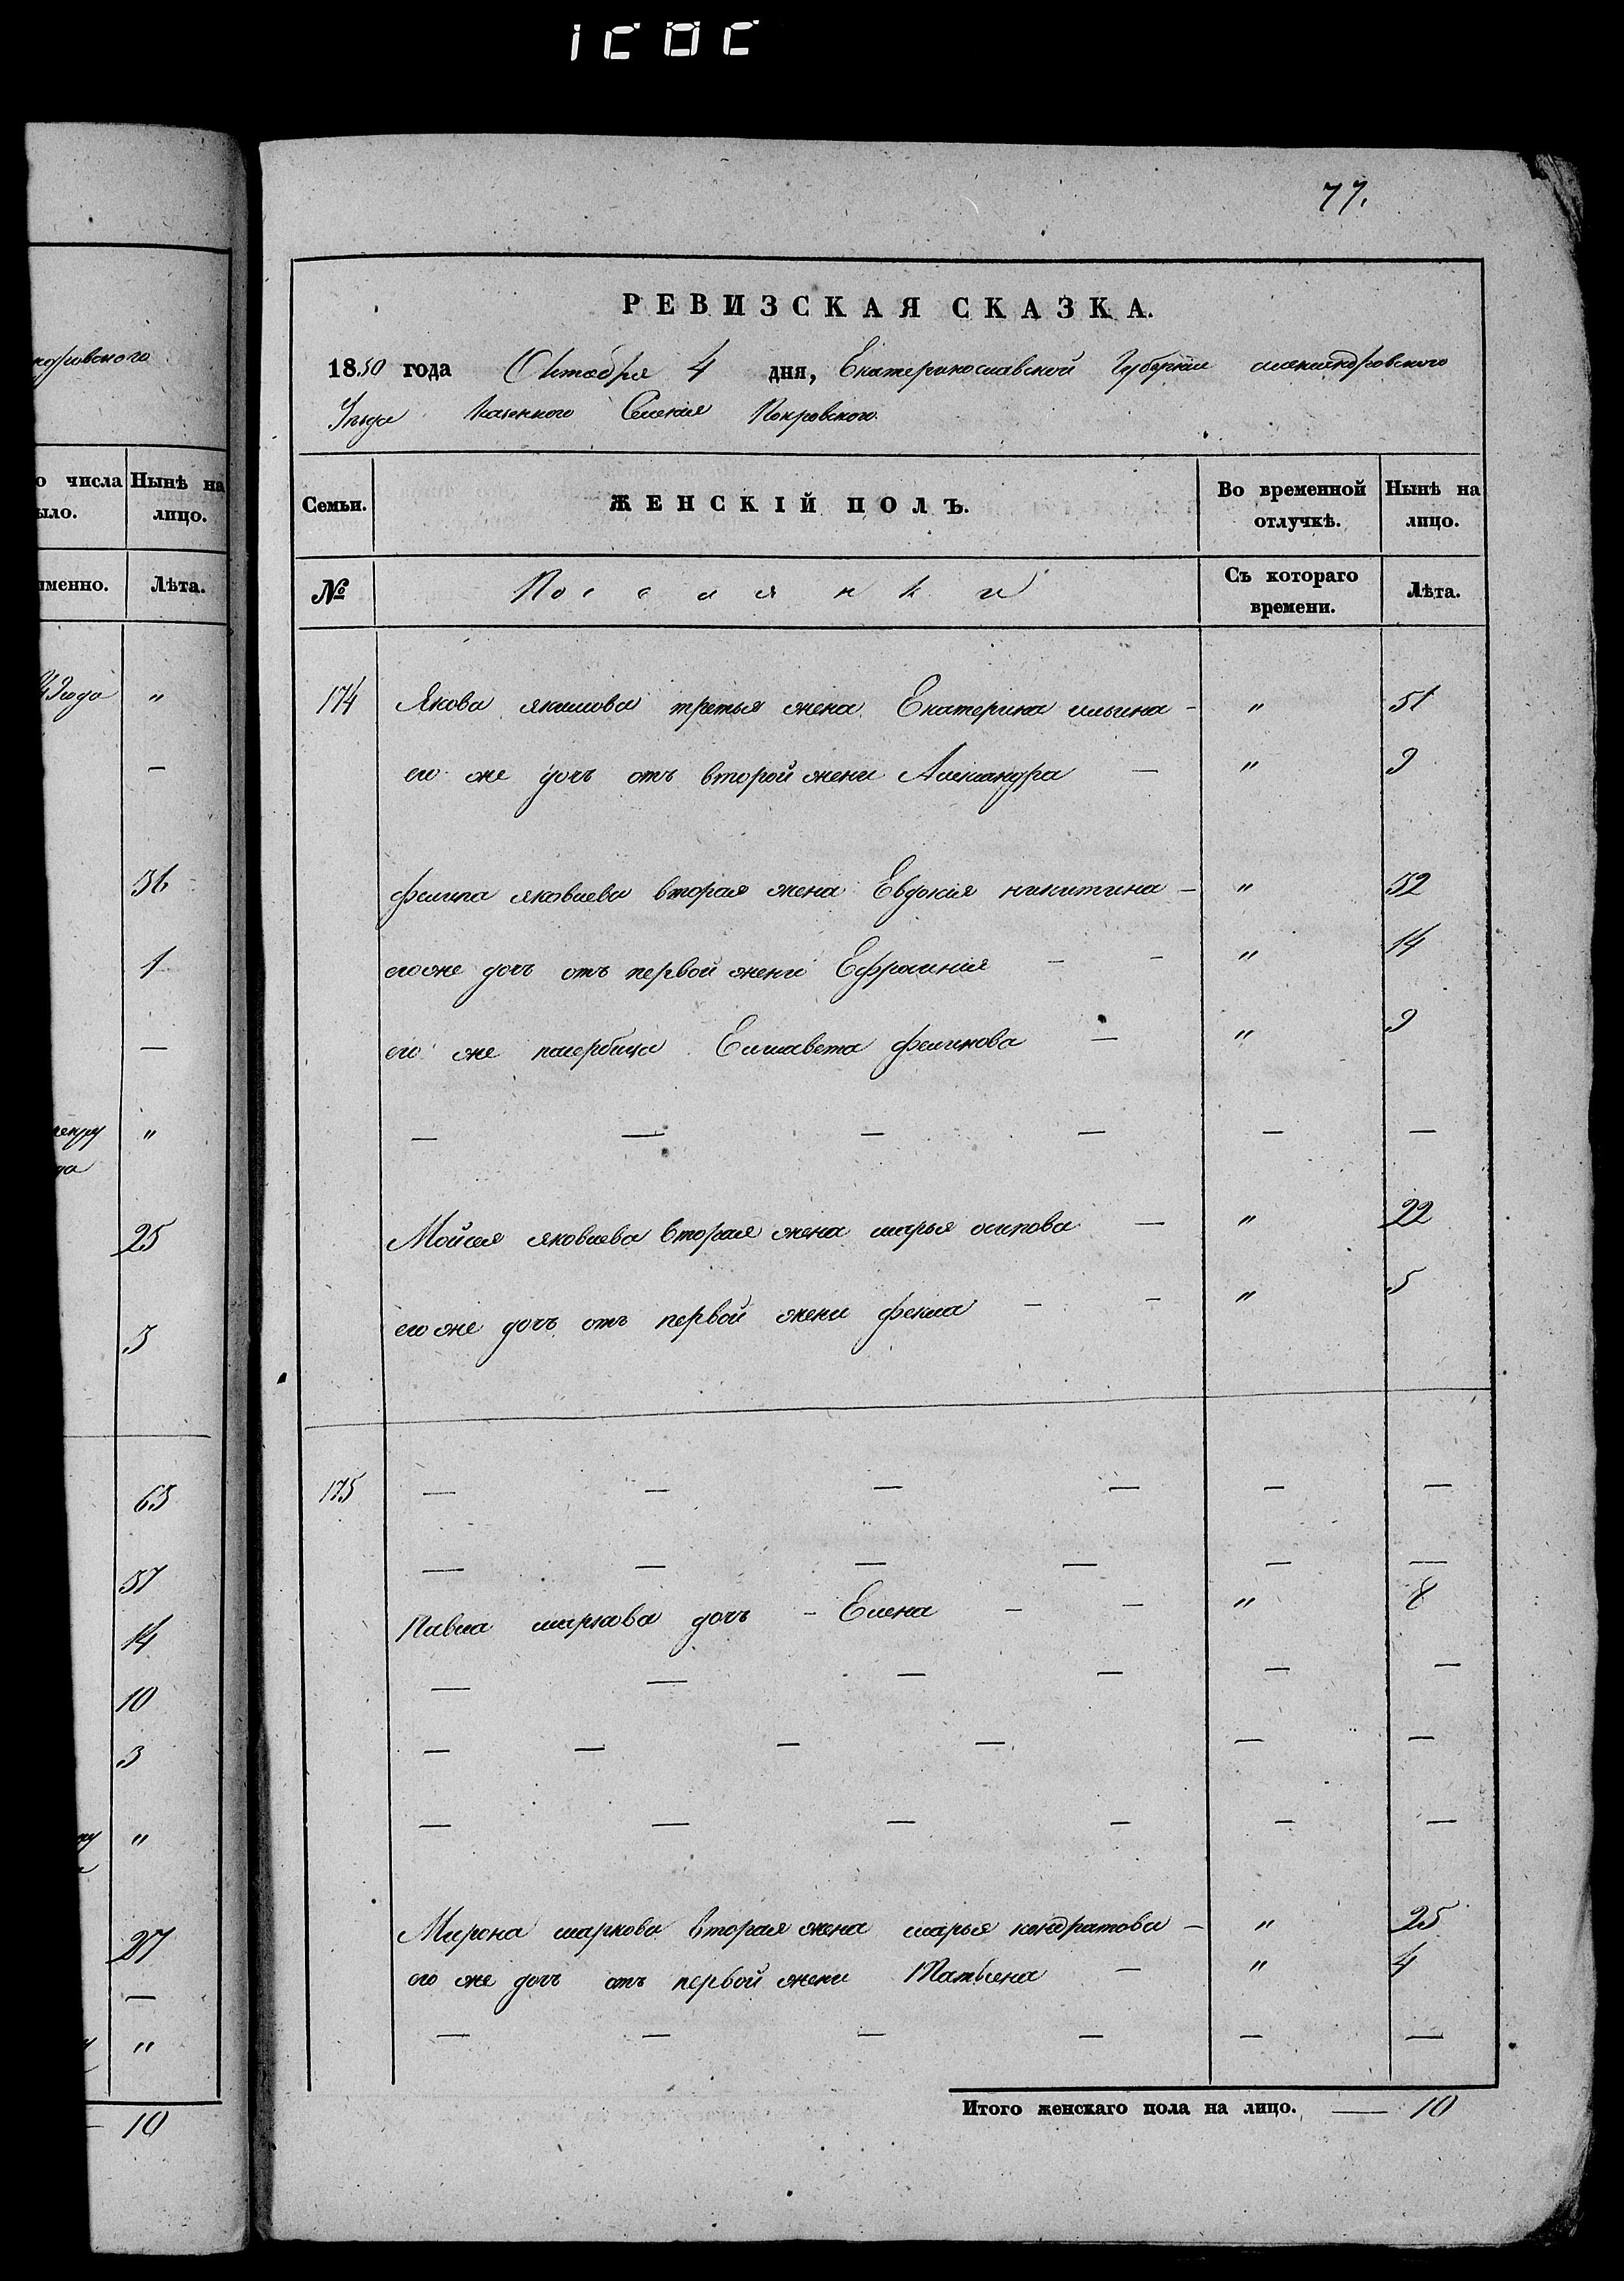 ндровского
о числа Нынѣ на
ыло. лицо.
именно. Лѣта.
года "
—
36
1
—
"
25
3
63
37
14
10
3
"
27
—
"
— 10
77.
РЕВИЗСКАЯ СКАЗКА.
1850 года Октября 4 дня, Екатеринославской Губернiи александровского
Уезда Казенного Селенiя Покровского
Семьи. ЖЕНСКIЙ ПОЛЪ. Во временной отлучкѣ. Нынѣ на лицо.
№ Поселянки Съ котораго времени. Лѣта.
174 Якова якимова третья жена Екатерина ильина - " 51
его же дочь отъ второй жени Александра — " 9
филипа яковлева вторая жена Евдокiя никитина - " 32
егоже дочь отъ первой жени Ефросинiя - - " 14
его же пасербица Елисавета филипова — " 9
— — — — — —
Мойсея яковлева вторая жена марья осипова — " 22
егоже дочь отъ первой жени фекла - - " 5
175 — — — — — —
— — — — — —
Павла маркова дочь - Елена - - " 8
— — — — — —
— — — — — —
— — — — — —
Мирона маркова вторая жена марья кондратова - " 25
его же дочь отъ первой жени Татьяна — " 4
— — — — — —
Итого женскаго пола на лицо. — 10